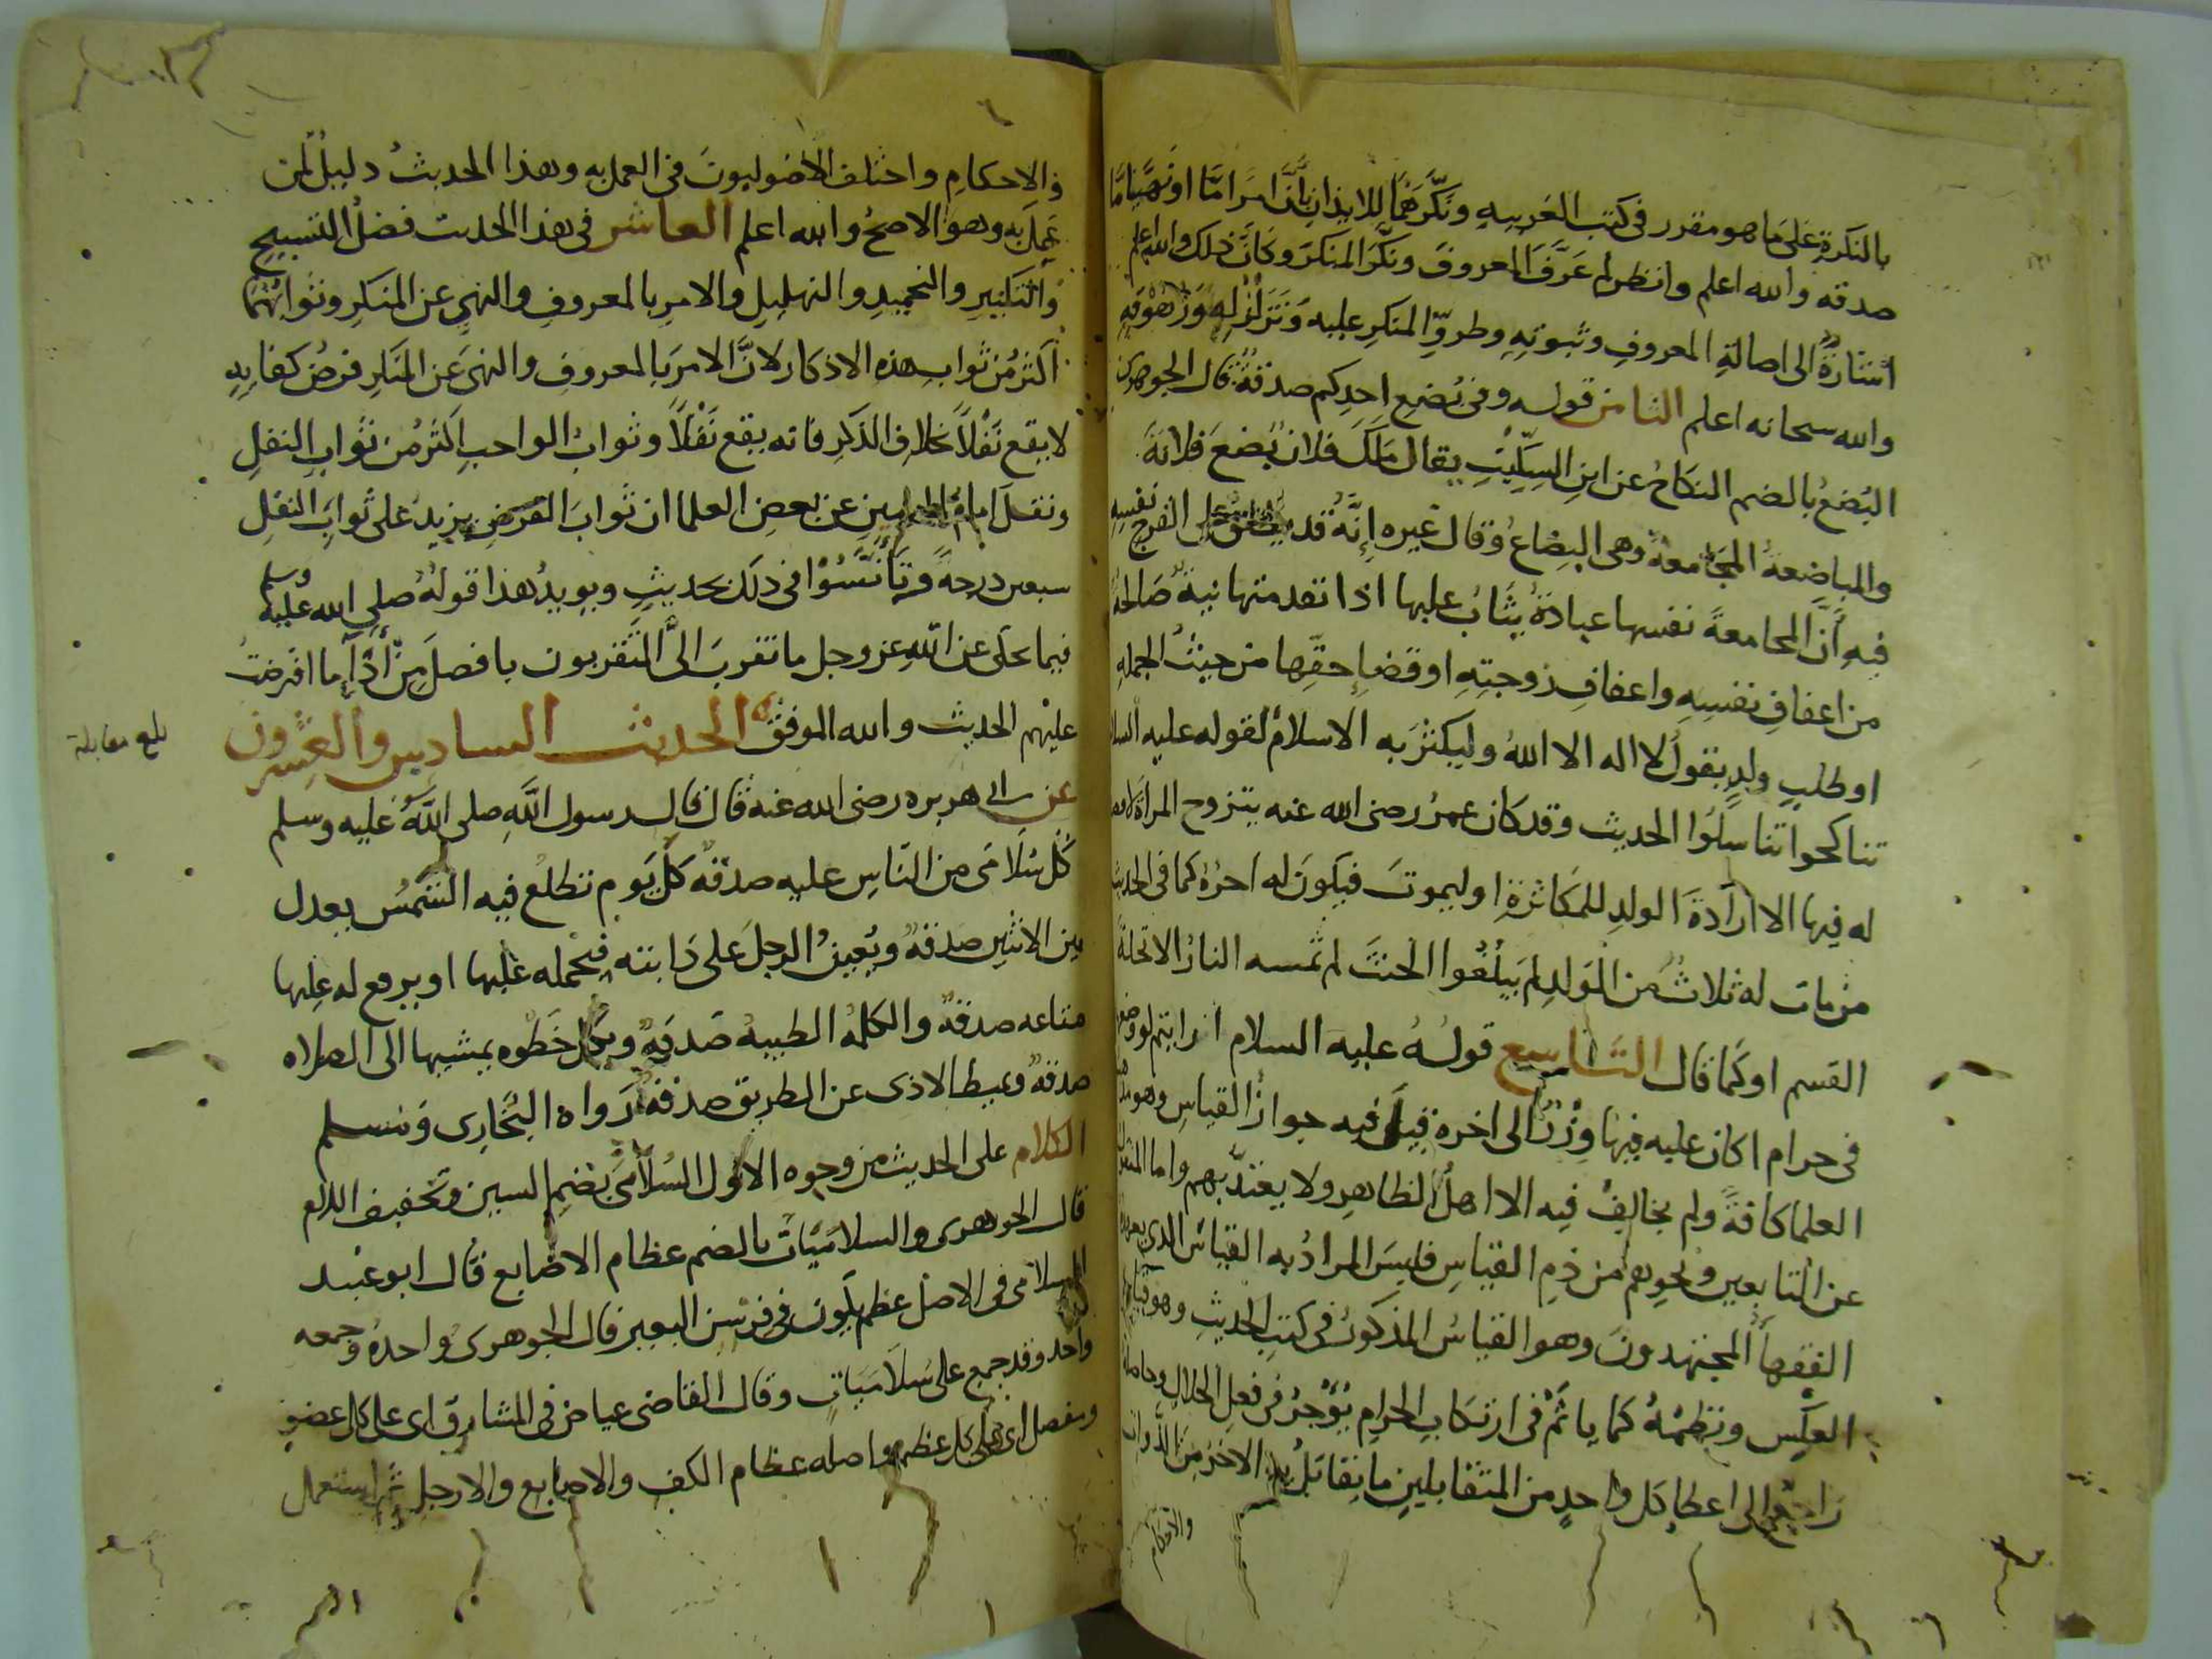 بالنكرة على ما هو مقرر في كتب العربيه ونكرهما للايذان بأن امرا ما او نهيا ما
صدقه والله اعلم وانظر لم عرف المعروف ونكر المنكر وكان ذلك والله اعلم
اشارة الى اصالة المعروف وثبوته وطرو المنكر عليه وتزلزله وزهوقه
والله سبحانه اعلم الثامن قوله وفي بضع احدكم صدقة قال الجوهري
البضع بالضم النكاح عن ابن السكيت يقال ملك فلان بضع فلانة
والمباضعة المجامعة وهي البضاع وقال غيره إنه قد يطلق على الفرج نفسه
فيه أن المجامعة نفسها عبادة يثاب عليها اذا تقدمتها نية صالحة
من اعفاف نفسه واعفاف زوجته او قضاء حقها من حيث الجمله
او طلب ولد يقول لا اله الا الله وليكثر به الاسلام لقوله عليه السلا
تناكحوا تناسلوا الحديث وقد كان عمر رضى الله عنه يتزوج المراة لا
له فيها الا ارادة الولد للمكاثرة او ليموت فيكون له اجره كما في الحديث
من مات له ثلاث من الولد لم يبلغوا الحنث لم تمسه النار الا تحلة
القسم او كما قال التاسع قوله عليه السلام ارايتم لو وضعها
في حرام اكان عليه فيها وزر الى اخره قيل فيه جواز القياس وهو مذهب
العلما كافة ولم يخالف فيه الا اهل الظاهر ولا يعتد بهم واما المنقول
عن التابعين ونحوهم من ذم القياس فليس المراد به القياس الذي يعهده
الفقهاء المجتهدون وهو القياس المذكور في كتب الحديث وهو قياس
العكس ونظمه كما ياثم في ارتكاب الحرام يؤجر في فعل الحلال وحاصله
راجع الى اعطاء كل واحد من المتقابلين ما يقابل به الاخر من الذوات
والاحكام
والاحكام واختلف الأصوليون في العمل به وهذا الحديث دليل لمن
عمل به وهو الاصح والله اعلم العاشر في هذا الحديث فضل التسبيح
والتكبير والتحميد والتهليل والامر بالمعروف والنهي عن المنكر وثوابهما
اكثر من ثواب هذه الاذكار لان الامر بالمعروف والنهى عن المنكر فرض كفايه
لا يقع نفلا بخلاف الذكر فانه يقع نفلا وثواب الواجب اكثر من ثواب النفل
ونقل امام الحرمين عن بعض العلما ان ثواب الفرض يزيد على ثواب النفل
سبعين درجة وتأنسوا في ذلك بحديث ويويد هذا قوله صلى الله عليه وسلم
فيما يحكى عن الله عز وجل ما تقرب الى المتقربون بافضل من أداء ما افترضت
عليهم الحديث والله الموفق الحديث السادس والعشرون
بلغ مقابلة
عن ابي هريره رضى الله عنه قال قال رسول الله صلى الله عليه وسلم
كل سلامى من الناس عليه صدقه كل يوم تطلع فيه الشمس يعدل
بين الاثنين صدقه ويعين الرجل على دابته فيحمله عليها او يرفع له عليها
متاعه صدقه والكلمه الطيبه صدقه وبكل خطوه يمشيها الى الصلاه
صدقه ويميط الاذى عن الطريق صدقه رواه البخارى ومسلم
الكلام على الحديث من وجوه الاول السلامى بضم السين وتخفيف اللام
قال الجوهرى والسلاميات بالضم عظام الاصابع قال ابو عبيد
السلامى في الاصل عظم يكون في فرسن البعير قال الجوهرى واحده وجمعه
واحد وقد جمع على سلاميات وقال القاضى عياض في المشارق اى على كل عضو
ومفصل اى على كل عظم واصله عظام الكف والاصابع والارجل ثم استعمل